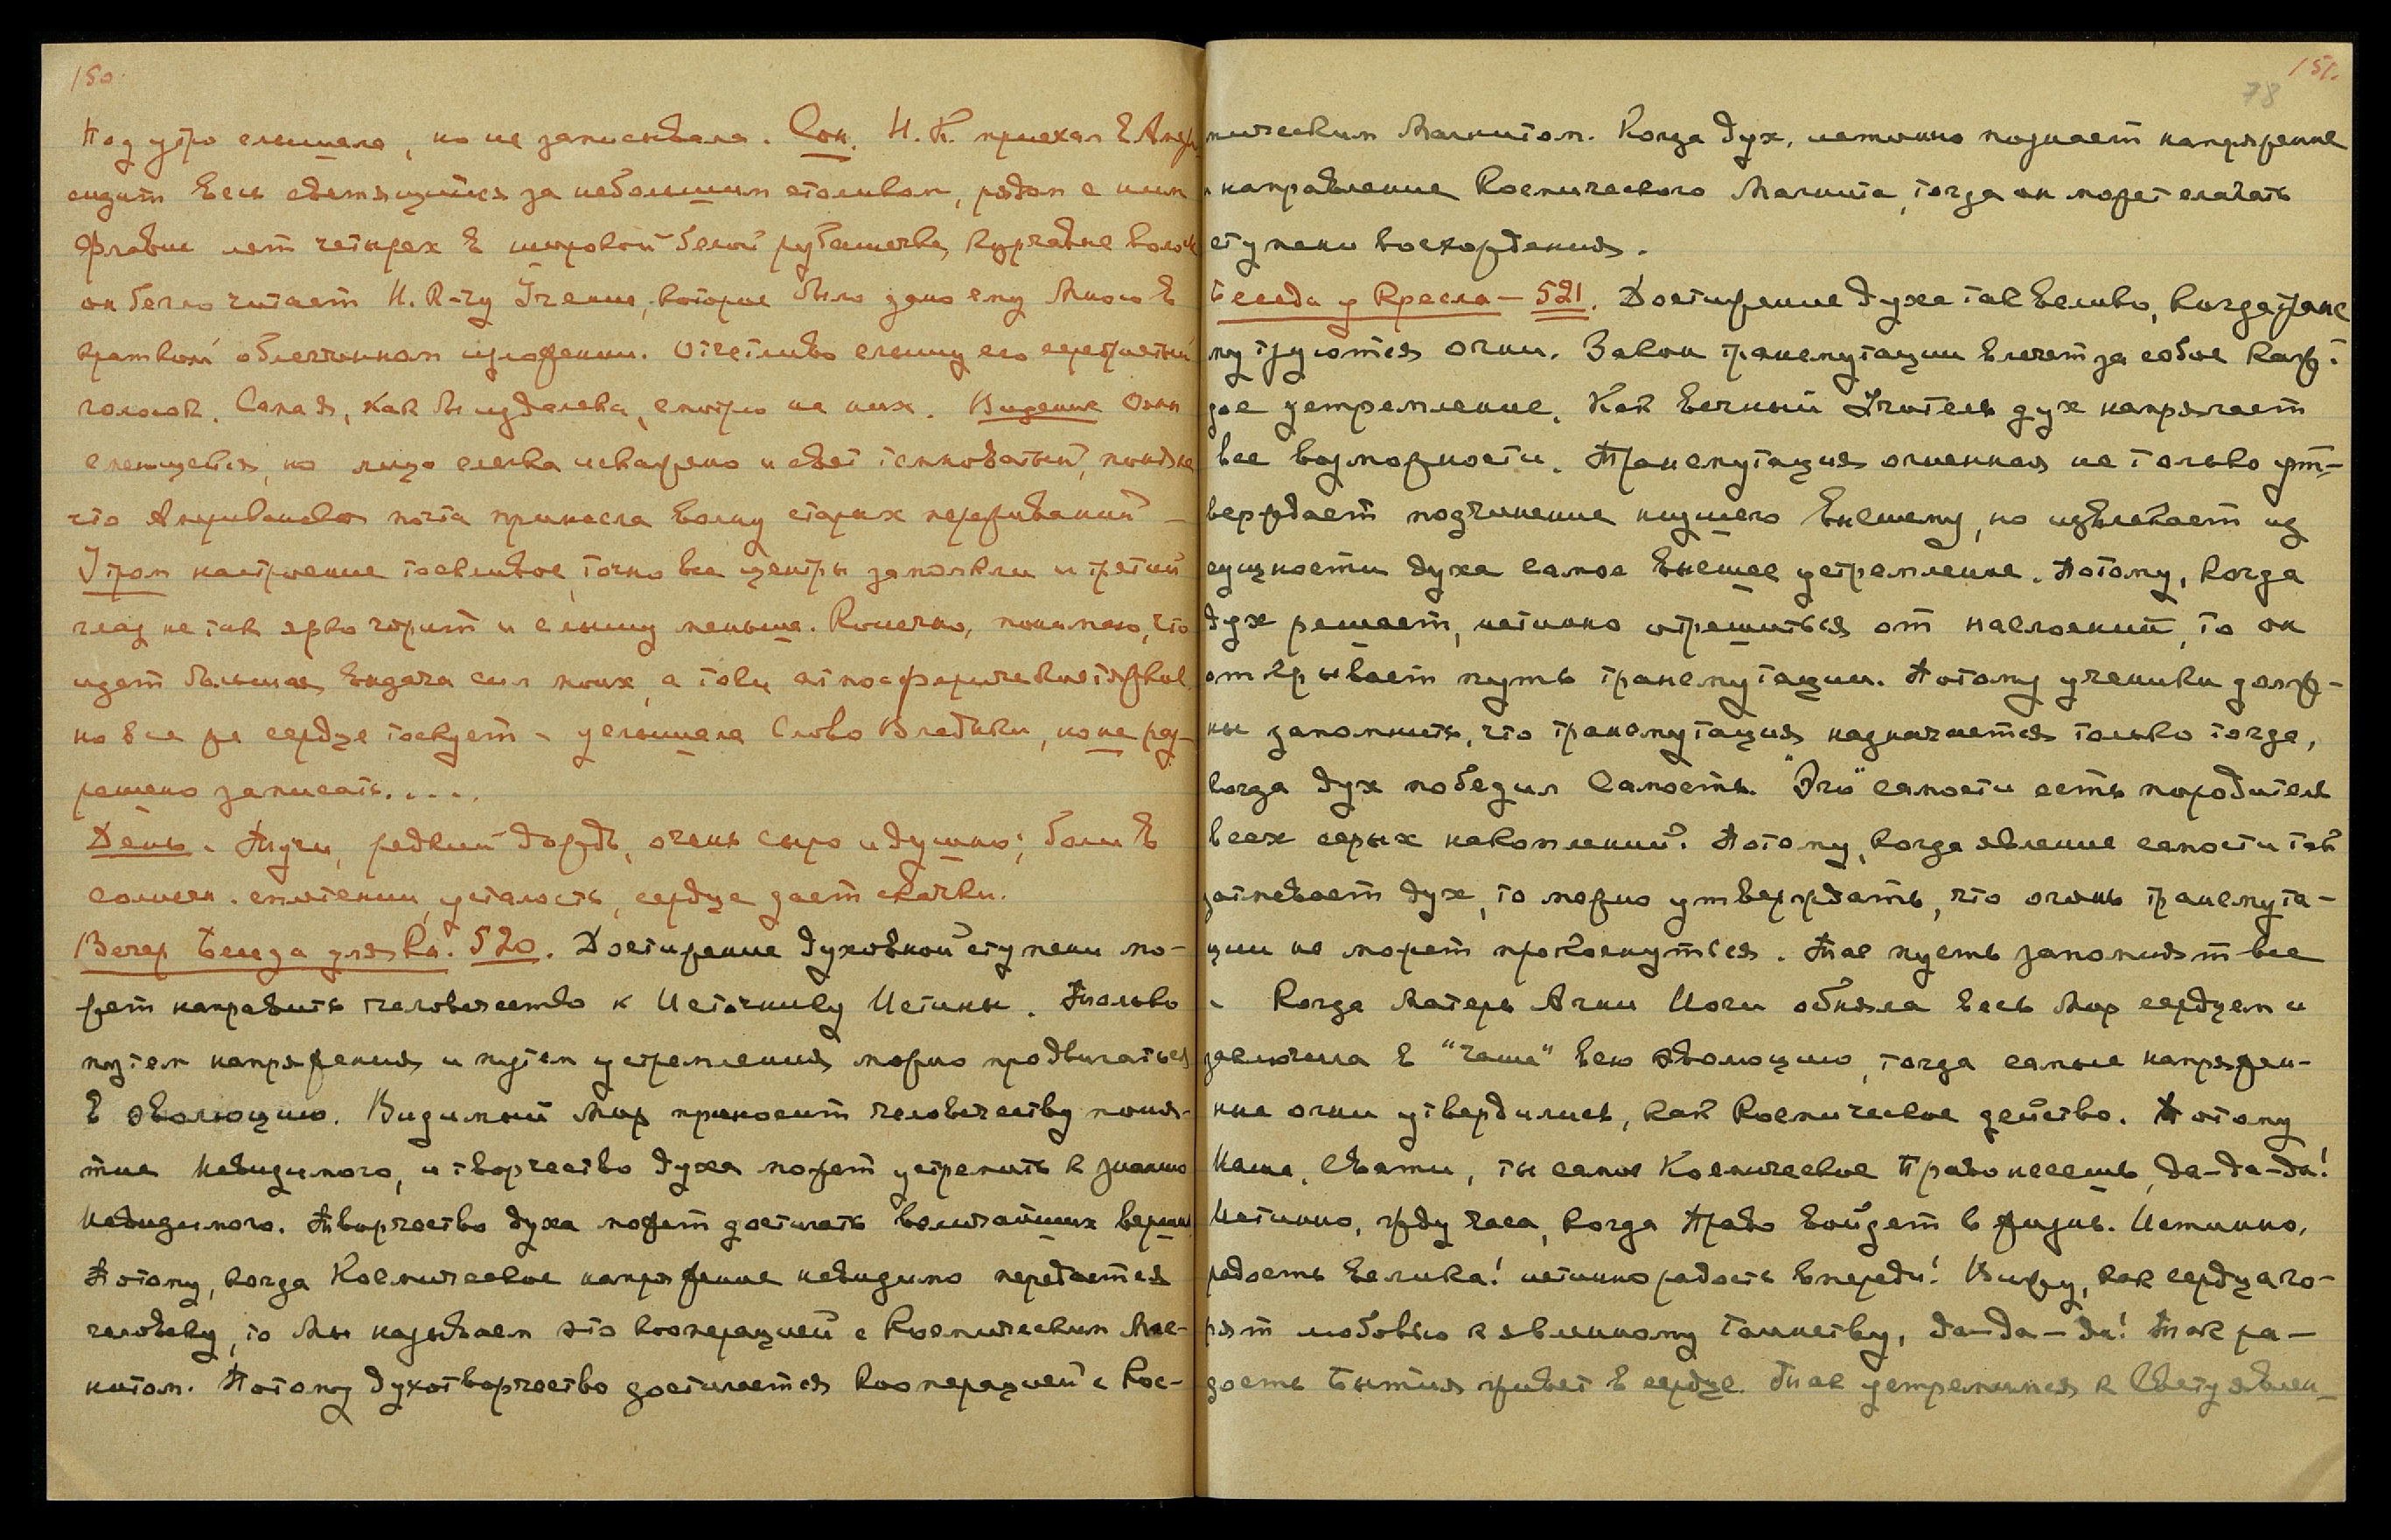 150.
Под утро слышала, но не записывала. Сон. Н.К. приехал в Амер
сидит весь светящийся за небольшим столиком, рядом с ним
Флавий лет четырех в широкой белой рубашечке, курчавые волосы
он бегло читает Н. К-чу Учение, которое было дано ему Мною в
краткой облегченном изложении. Отчетливо слышу его серебристый
голосок. Сама я, как бы издалека, смотрю на них. Видение Очи
смеющейся, но лицо слегка искажено и свет темноватый, поняла
что Американская почта принесла волну старых переживаний —
Утром настроение тоскливое, точно все центры замолкли и третий
глаз не так ярко горит и слышу меньше. Конечно, понимаю, что
идет большая выдача сил моих, а токи атмосферические тяжкие
но все же сердце тоскует – услышала Слово Владыки, но не раз-
решено записать....
День. Тучи, редкий дождь, очень сыро и душно; боли в
солнечн. сплетении, усталость, сердце дает скачки.
Вечер Беседа для Кн. 520. Достижение духовной ступени мо-
жет направить человечество к Источнику Истины. Только
путем напряжения и путем устремления можно продвигаться
в эволюцию. Видимый Мир приносит человечеству поня-
тие Невидимого, и творчество духа может устремить к знанию
Невидимого. Творчество духа может достигать величайших вершин
Потому, когда Космическое напряжение невидимо передается
человеку, то Мы называем это кооперацией с Космическим Маг-
нитом. Потому духотворчество достигается кооперацией с Кос-
151.
78
мическим Магнитом. Когда дух, истинно познает напряжение
и направление Космического Магнита, тогда он может слагать
ступени восхождения.
Беседа у Кресла — 521. Достижение духа так велико, когда транс
мутируются огни. Закон трансмутации влечет за собою каж-
дое устремление. Как вечный Учитель дух напрягает
все возможности. Трансмутация огненная не только ут-
верждает подчинение низшего высшему, но извлекает из
сущности духа самое высшее устремление. Потому, когда
дух решает, истинно отрешиться от наслоений, то он
открывает путь трансмутации. Потому ученики долж-
ны запомнить, что трансмутация назначается только тогда,
когда дух победил самость. "Эго" самости есть породитель
всех серых накоплений. Потому, когда явление самости так
затмевает дух, то можно утверждать, что огонь трансмута-
ции не может прикоснуться. Так пусть запомнят все
– Когда Матерь Агни Йоги обняла весь Мир сердцем и
заключила в "чаше" всю эволюцию, тогда самые напряжен-
ные огни утвердились, как Космическое действо. Потому
Наша, Свати, ты самое Космическое Право несешь, да–да–да!
Истинно, жду часа, когда Право войдет в жизнь. Истинно,
радость велика! истинно радость впереди! Вижу, как сердца го-
рят любовью к явленному таинству, да–да–да! Так ра-
дость Бытия живет в сердце. Так устремимся к Свету явлен–